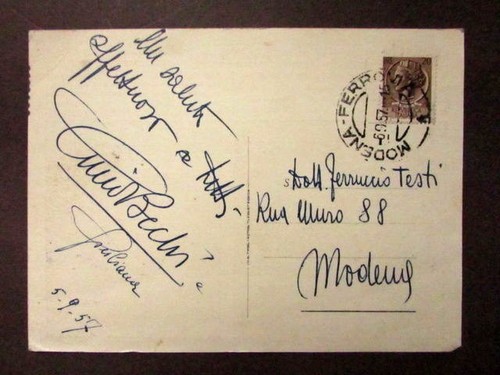 Un saluto
affettuoso a tutti
Gino Bechi
e
Giuliana
5.9.57
MODENA-FERROVIA
6.9.57
Dott. Ferruccio Testi
Rua Muro 88
Modena